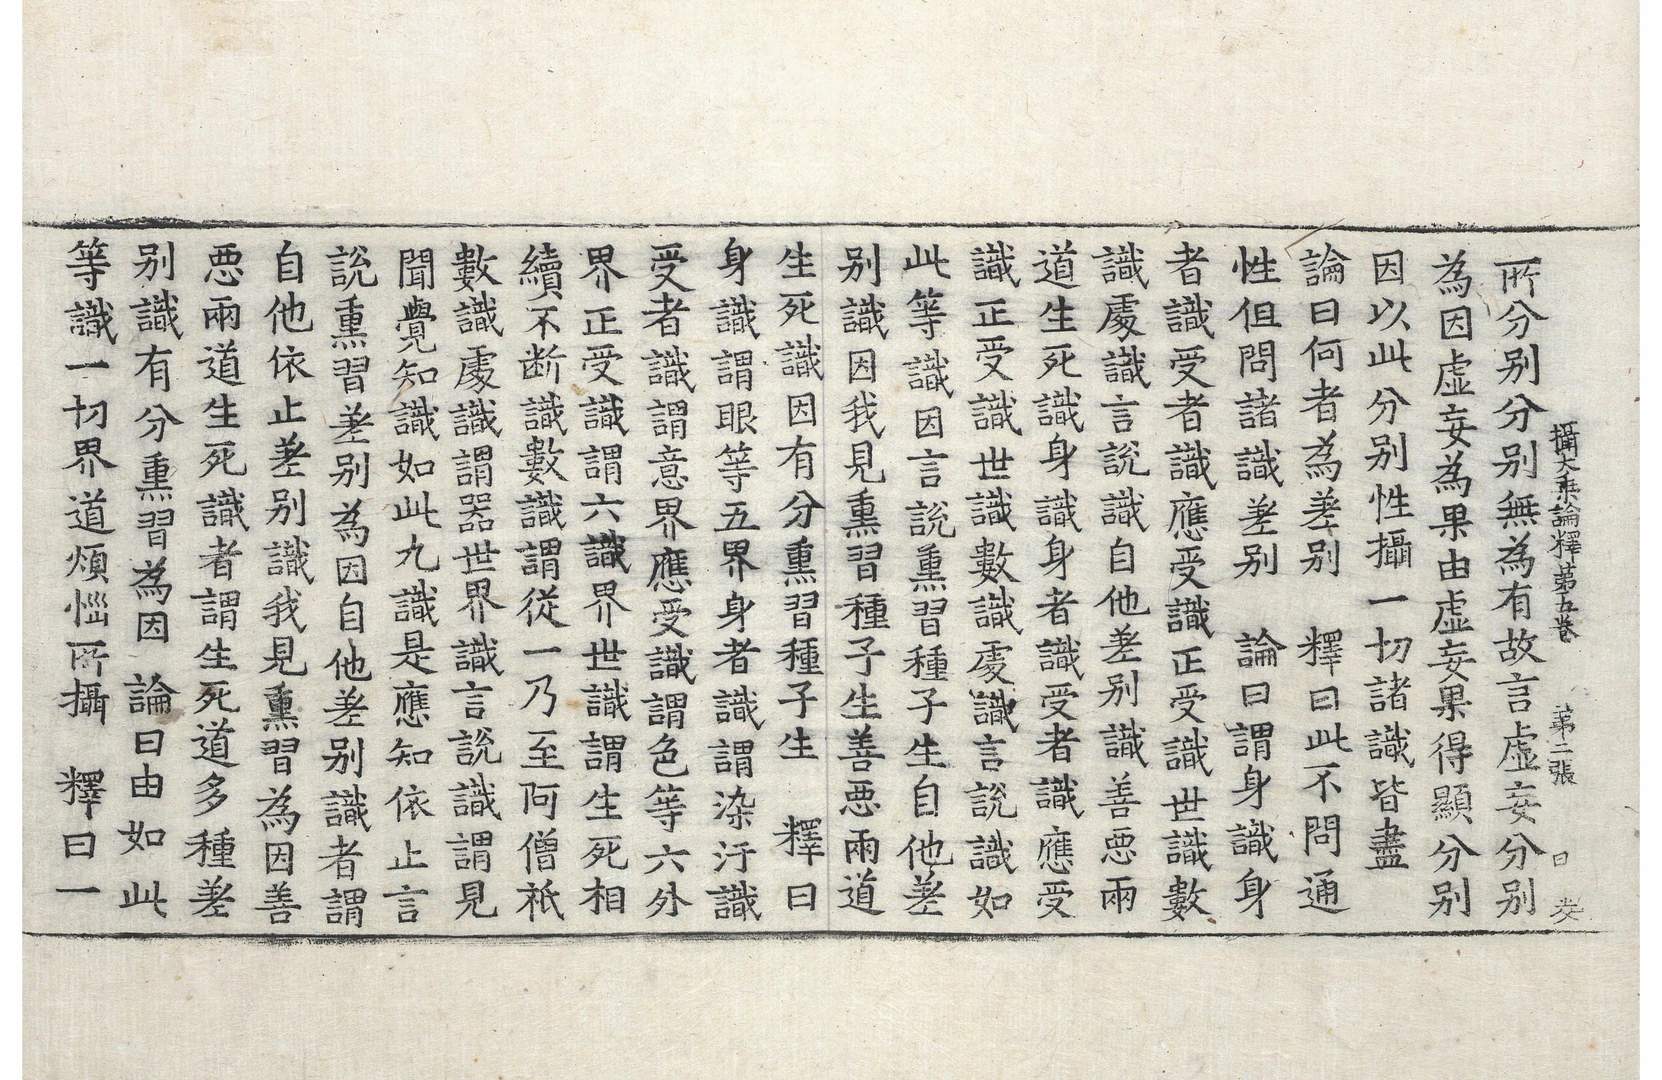 攝大乘論釋第五卷　第二張　曰
所分別分別無為有故言虛妄分別
為因虛妄為果由虛妄果得顯分別
因以此分別性攝一切諸識皆盡
論曰何者為差別　釋曰此不問通
性但問諸識差別　論曰謂身識身
者識受者識應受識正受識世識數
識處識言說識自他差別識善惡兩
道生死識身識身者識受者識應受
識正受識世識數識處識言說識如
此等識因言說熏習種子生自他差
別識因我見熏習種子生善惡兩道
生死識因有分熏習種子生　釋曰
身識謂眼等五界身者識謂染汙識
受者識謂意界應受識謂色等六外
界正受識謂六識界世識謂生死相
續不斷識數識謂從一乃至阿僧祇
數識處識謂器世界識言說識謂見
聞覺知識如此九識是應知依止言
說熏習差別為因自他差別識者謂
自他依止差別識我見熏習為因善
惡兩道生死識者謂生死道多種差
別識有分熏習為因　論曰由如此
等識一切界道煩惱所攝　釋曰一